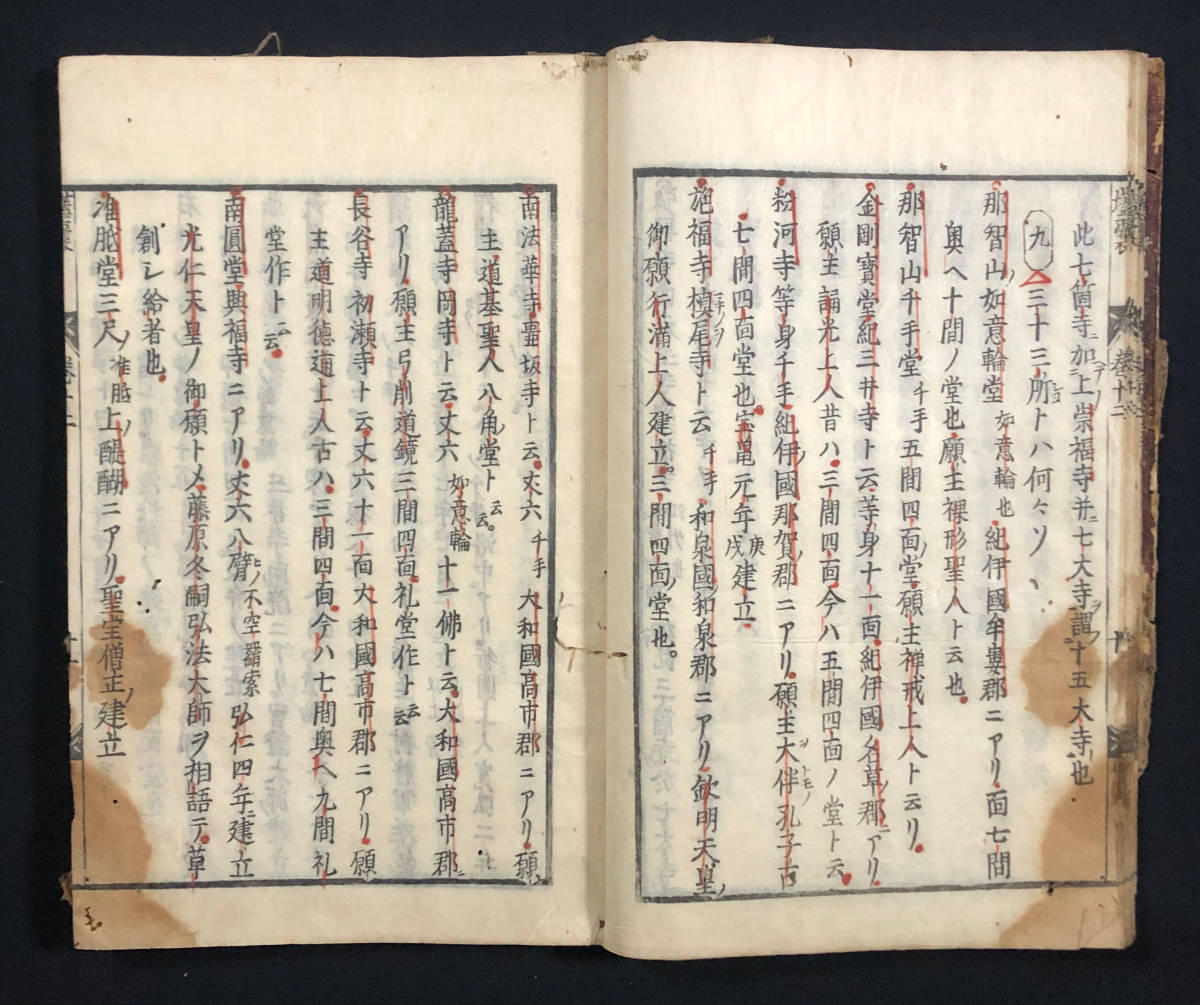 此七箇寺ニ加ヘテ上崇福寺并ニ七大寺ヲ謂フ十五大寺ト也
九 三十三所トハ何々ソ
那智山ノ如意輪堂 如意輪也 紀伊國牟婁郡ニアリ面七間
奥ヘ十間ノ堂也願主裸形聖人ト云也
那智山千手堂 千手 五間四面ノ堂願主禅戒上人ト云リ
金剛寶堂紀三井寺ト云等身十一面紀伊國名草郡ニアリ
願主誦光上人昔ハ三間四面今ハ五間四面ノ堂ト云
粉河寺等身千手紀伊國那賀郡ニアリ願主大伴ノ孔子古
七間四面堂也宝亀元年庚戌建立
施福寺槙尾寺ト云 千手 和泉國和泉郡ニアリ欽明天皇ノ
御願行滿上人建立三間四面ノ堂也
南法華寺壷坂寺ト云丈六 千手 大和國髙市郡ニアリ願
主道基聖人八角ノ堂ト云云
龍蓋寺岡寺ト云丈六 如意輪 十一佛ト云大和國高市郡ニ
アリ願主弓削道鏡三間四面礼堂作ト云云
長谷寺初瀬寺ト云丈六十一面大和國高市郡ニアリ願
主道明德道上人古ハ三間四面今ハ七間奥ヘ九間礼
堂作ト云云
南圓堂興福寺ニアリ丈六八臂ノ不空羂索弘仁四年ニ建立
光仁天皇ノ御願トメ藤原冬嗣弘法大師ヲ相語テ草
創シ給者也
准胝堂三尺ノ准胝上ノ醍醐ニアリ聖堂僧正ノ建立
卷十二